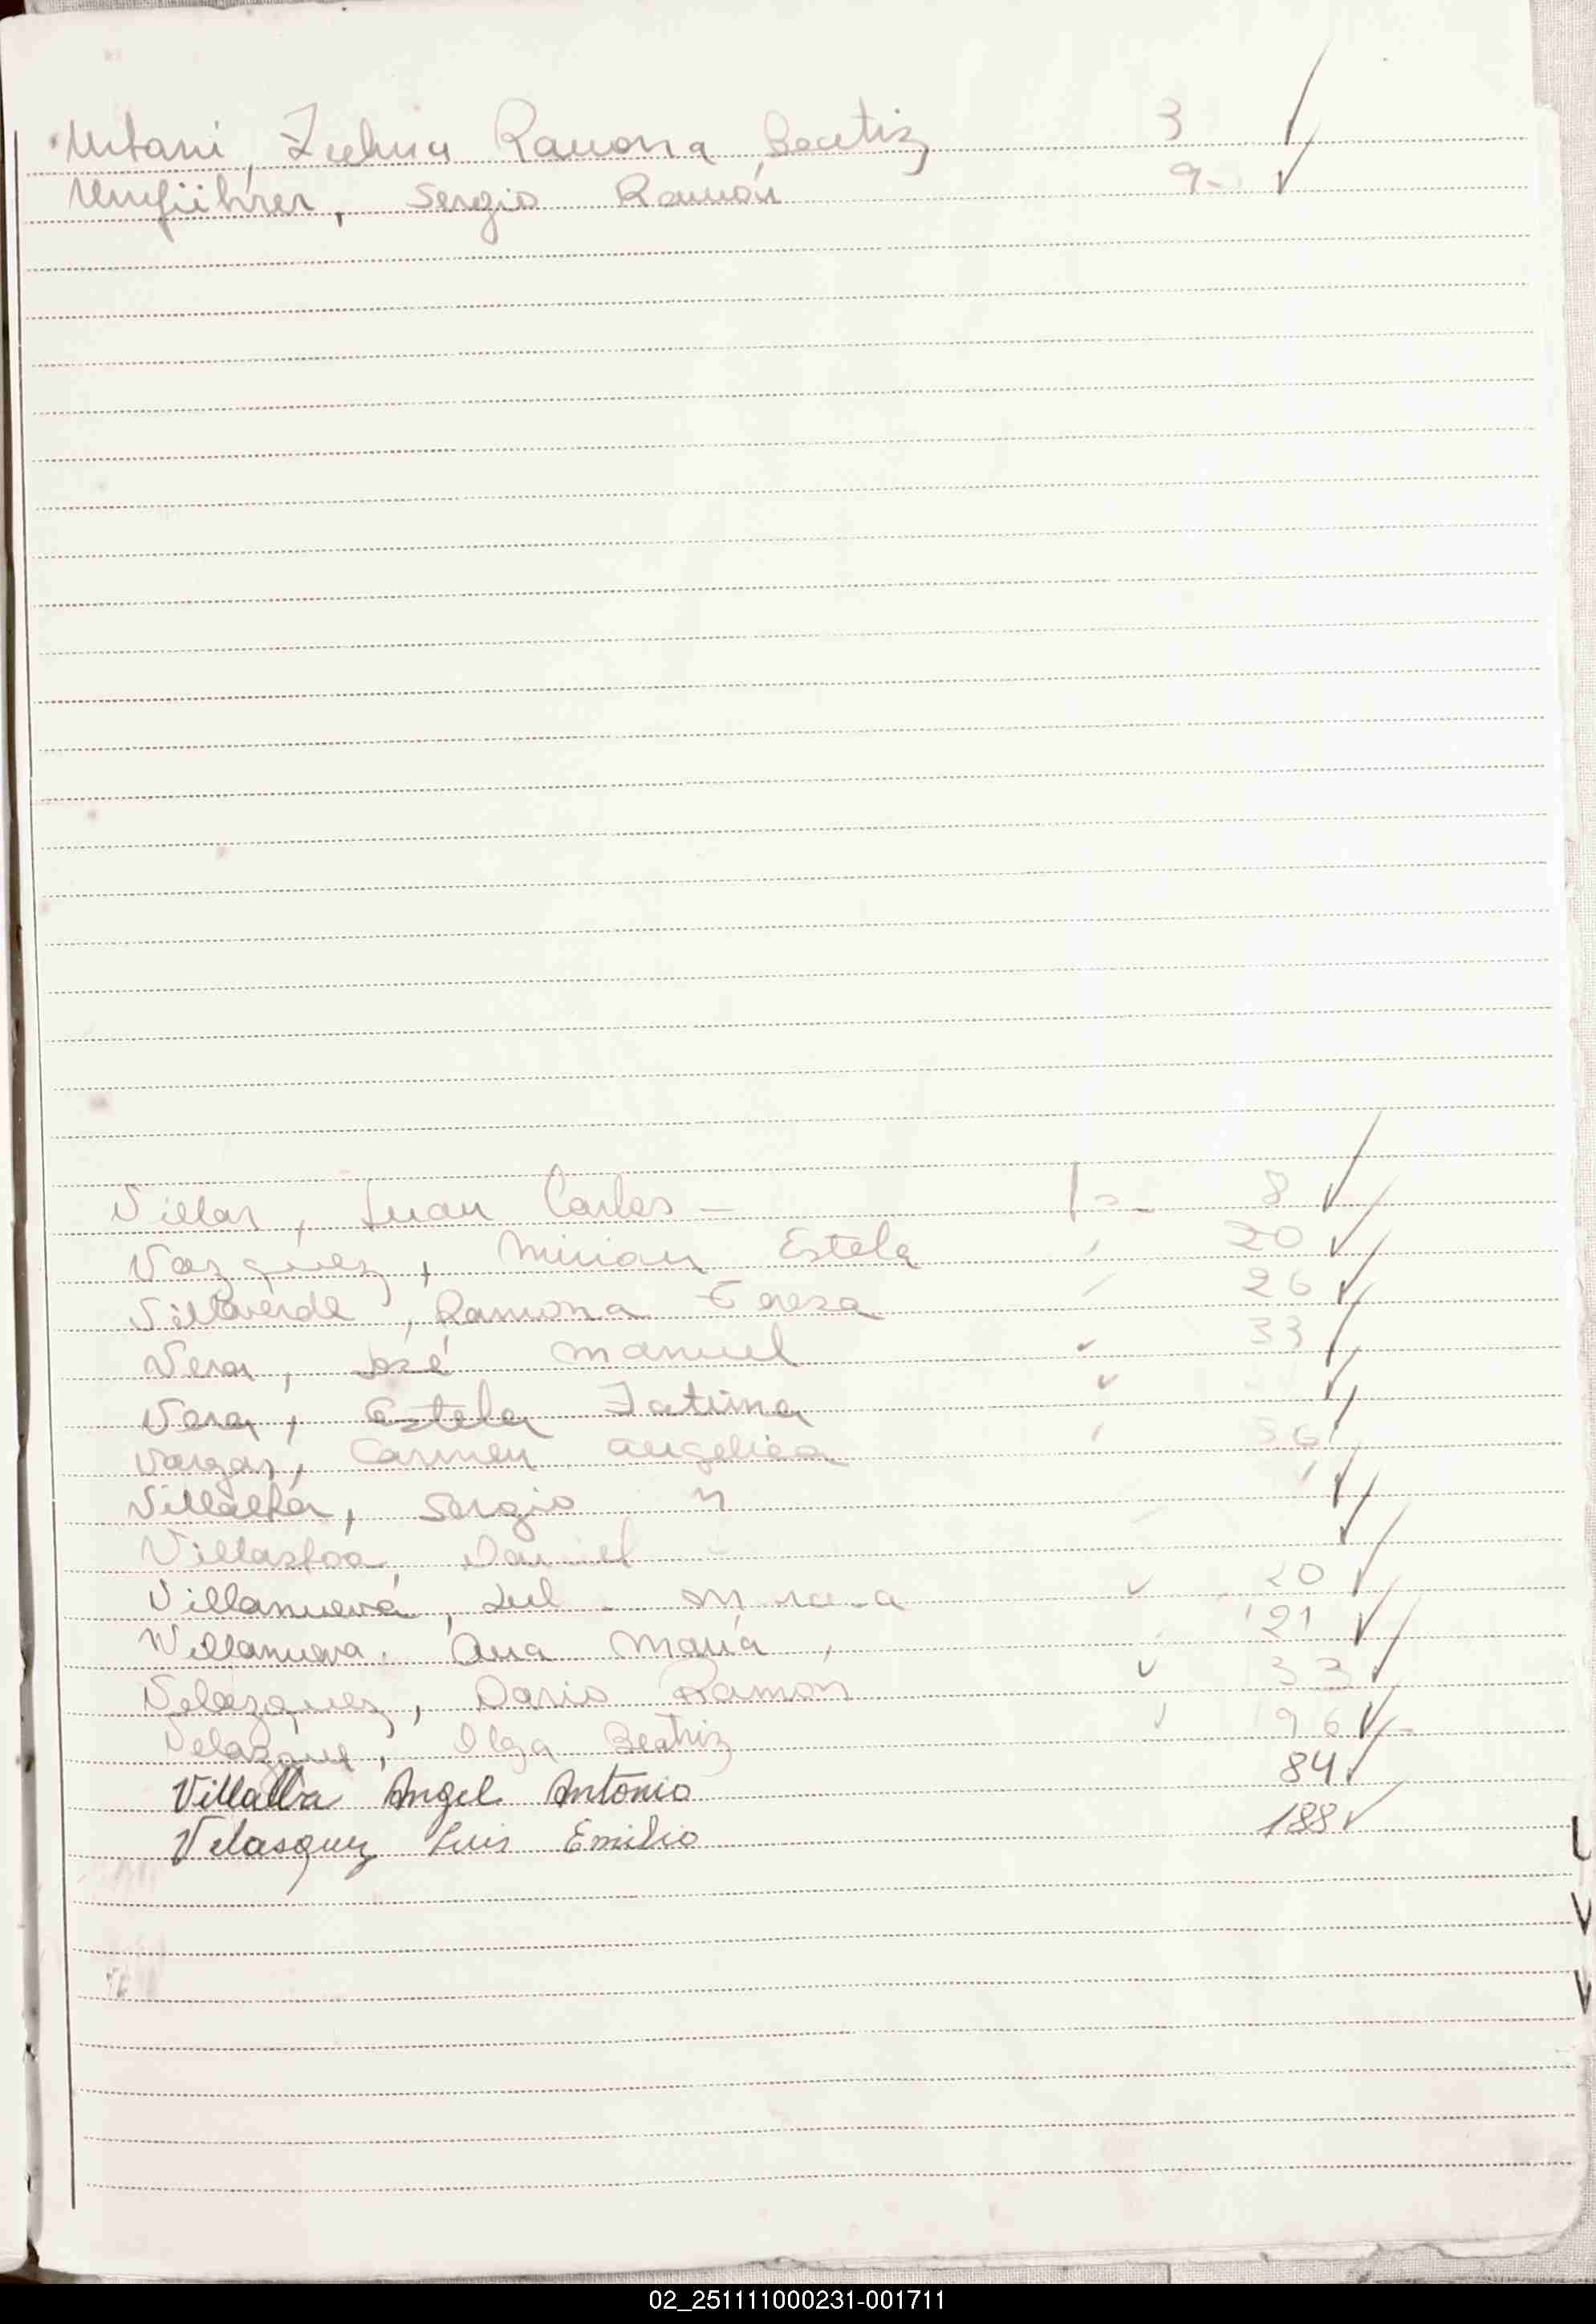 Urbani, Zulma Ramona Beatriz 3 ✓
Umführer, Sergio Ramón 9- ✓
Villar, Juan Carlos - 8 ✓
Vazquez, Mirian Estela 20 ✓
Villaverde, Ramona Teresa 26 ✓
Vera, José Manuel ✓ 33 ✓
Vera, Estela Fatima ✓ ✓
Vargas, Carmen Angelica 56 ✓
Villalba, Sergio ✓
Daniel ✓
Villanueva, ✓ 20 ✓
Villanueva, Ana María, 21 ✓
Velázquez, Dario Ramón ✓ 33 ✓
Velazque, Olga Beatriz ✓ 96 ✓
Villalba Angel Antonio 84 ✓
Velasquez Luis Emilio 188 ✓
02_251111000231-001711